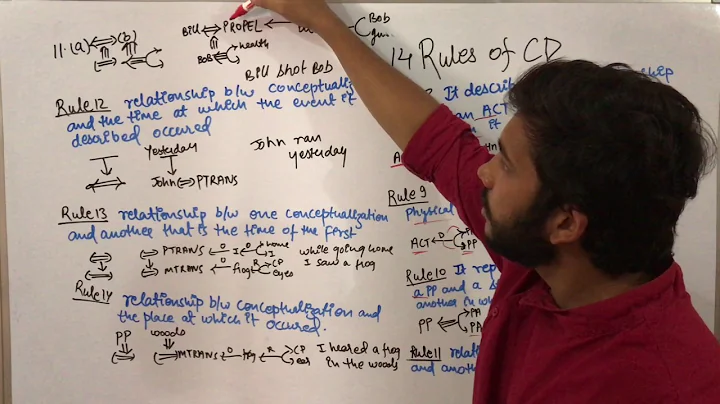 14 Rules of CD
11.(a) (b)
Bill PROPEL Bob
gun
Bob health
Bill shot Bob
Rule 12 relationship b/w conceptualiz
and the time at which the event it
described occured
T Yesterday
John PTRANS
John ran
yesterday
Rule 13 relationship b/w one conceptualization
and another that is the time of the first
PTRANS O I D home
I
MTRANS O frog R CP
eyes
while going home
I saw a frog
Rule 14 relationship b/w conceptualization and
the place at which it occured.
PP woods
MTRANS O frog R CP
ear
I heared a frog
in the woods
It describ ship
an ACT
it
Rule 9
Physical
ACT D PP
Rule 10 It rep
a PP and a s
another in wh
PP PA
PA
Rule 11 relati
and anoth